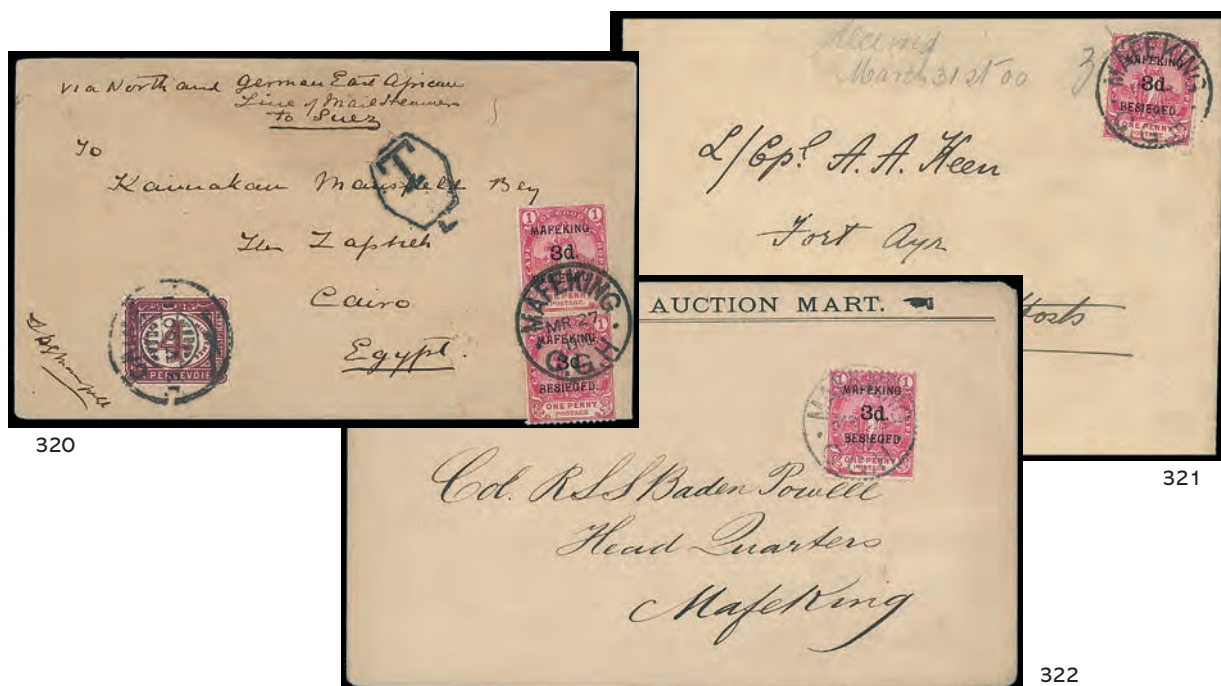 via North and German East African
Line of Mail Steamers
to Suez
To
Mansfield Bey
Zaptieh
Cairo
Egypt.
T
4
A PERCEVOIR
1
1
MAFEKING
3d.
ONE PENNY
POSTAGE
MAFEKING
MR 27
C.G.H
MAFEKING
3d.
BESIEGED.
ONE PENNY
POSTAGE
320
received
March 31st 00
3
MAFEKING
C.G.H
MAFEKING
3d.
BESIEGED.
ONE PENNY
POSTAGE
L/Cpl. A. A. Keen
Fort Ayr
321
AUCTION MART.
1
1
MAFEKING
3d.
BESIEGED.
ONE PENNY
POSTAGE
Col. R S S Baden Powell
Head Quarters
Mafeking
322